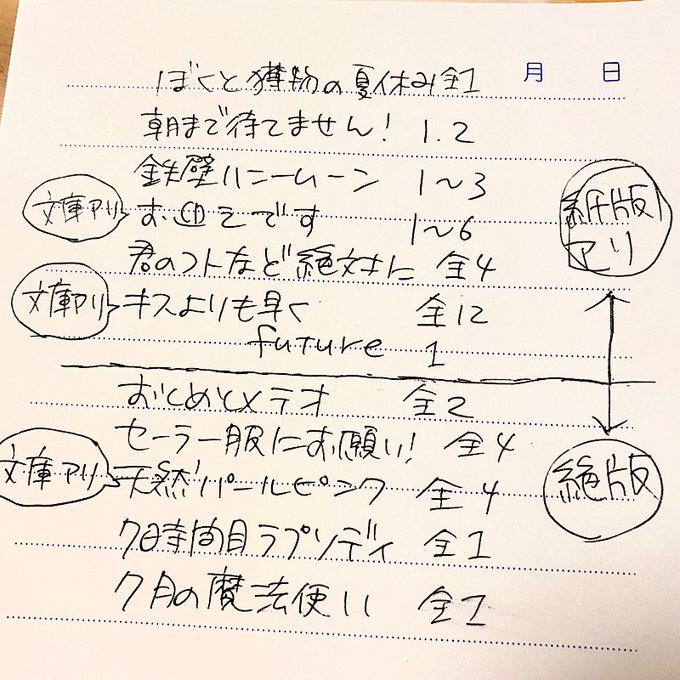 月 日
ぼくと獲物の夏休み全1
朝まで待てません! 1.2
鉄壁ハニームーン 1〜3
文庫アリ お迎えです 1〜6
紙版アリ
君のコトなど絶対に 全4
文庫アリ キスよりも早く 全12
future 1
おとめとメテオ 全2
セーラー服にお願い! 全4
文庫アリ 天然パールピンク 全4
絶版
7時間目ラプソディ 全1
7月の魔法使い 全1